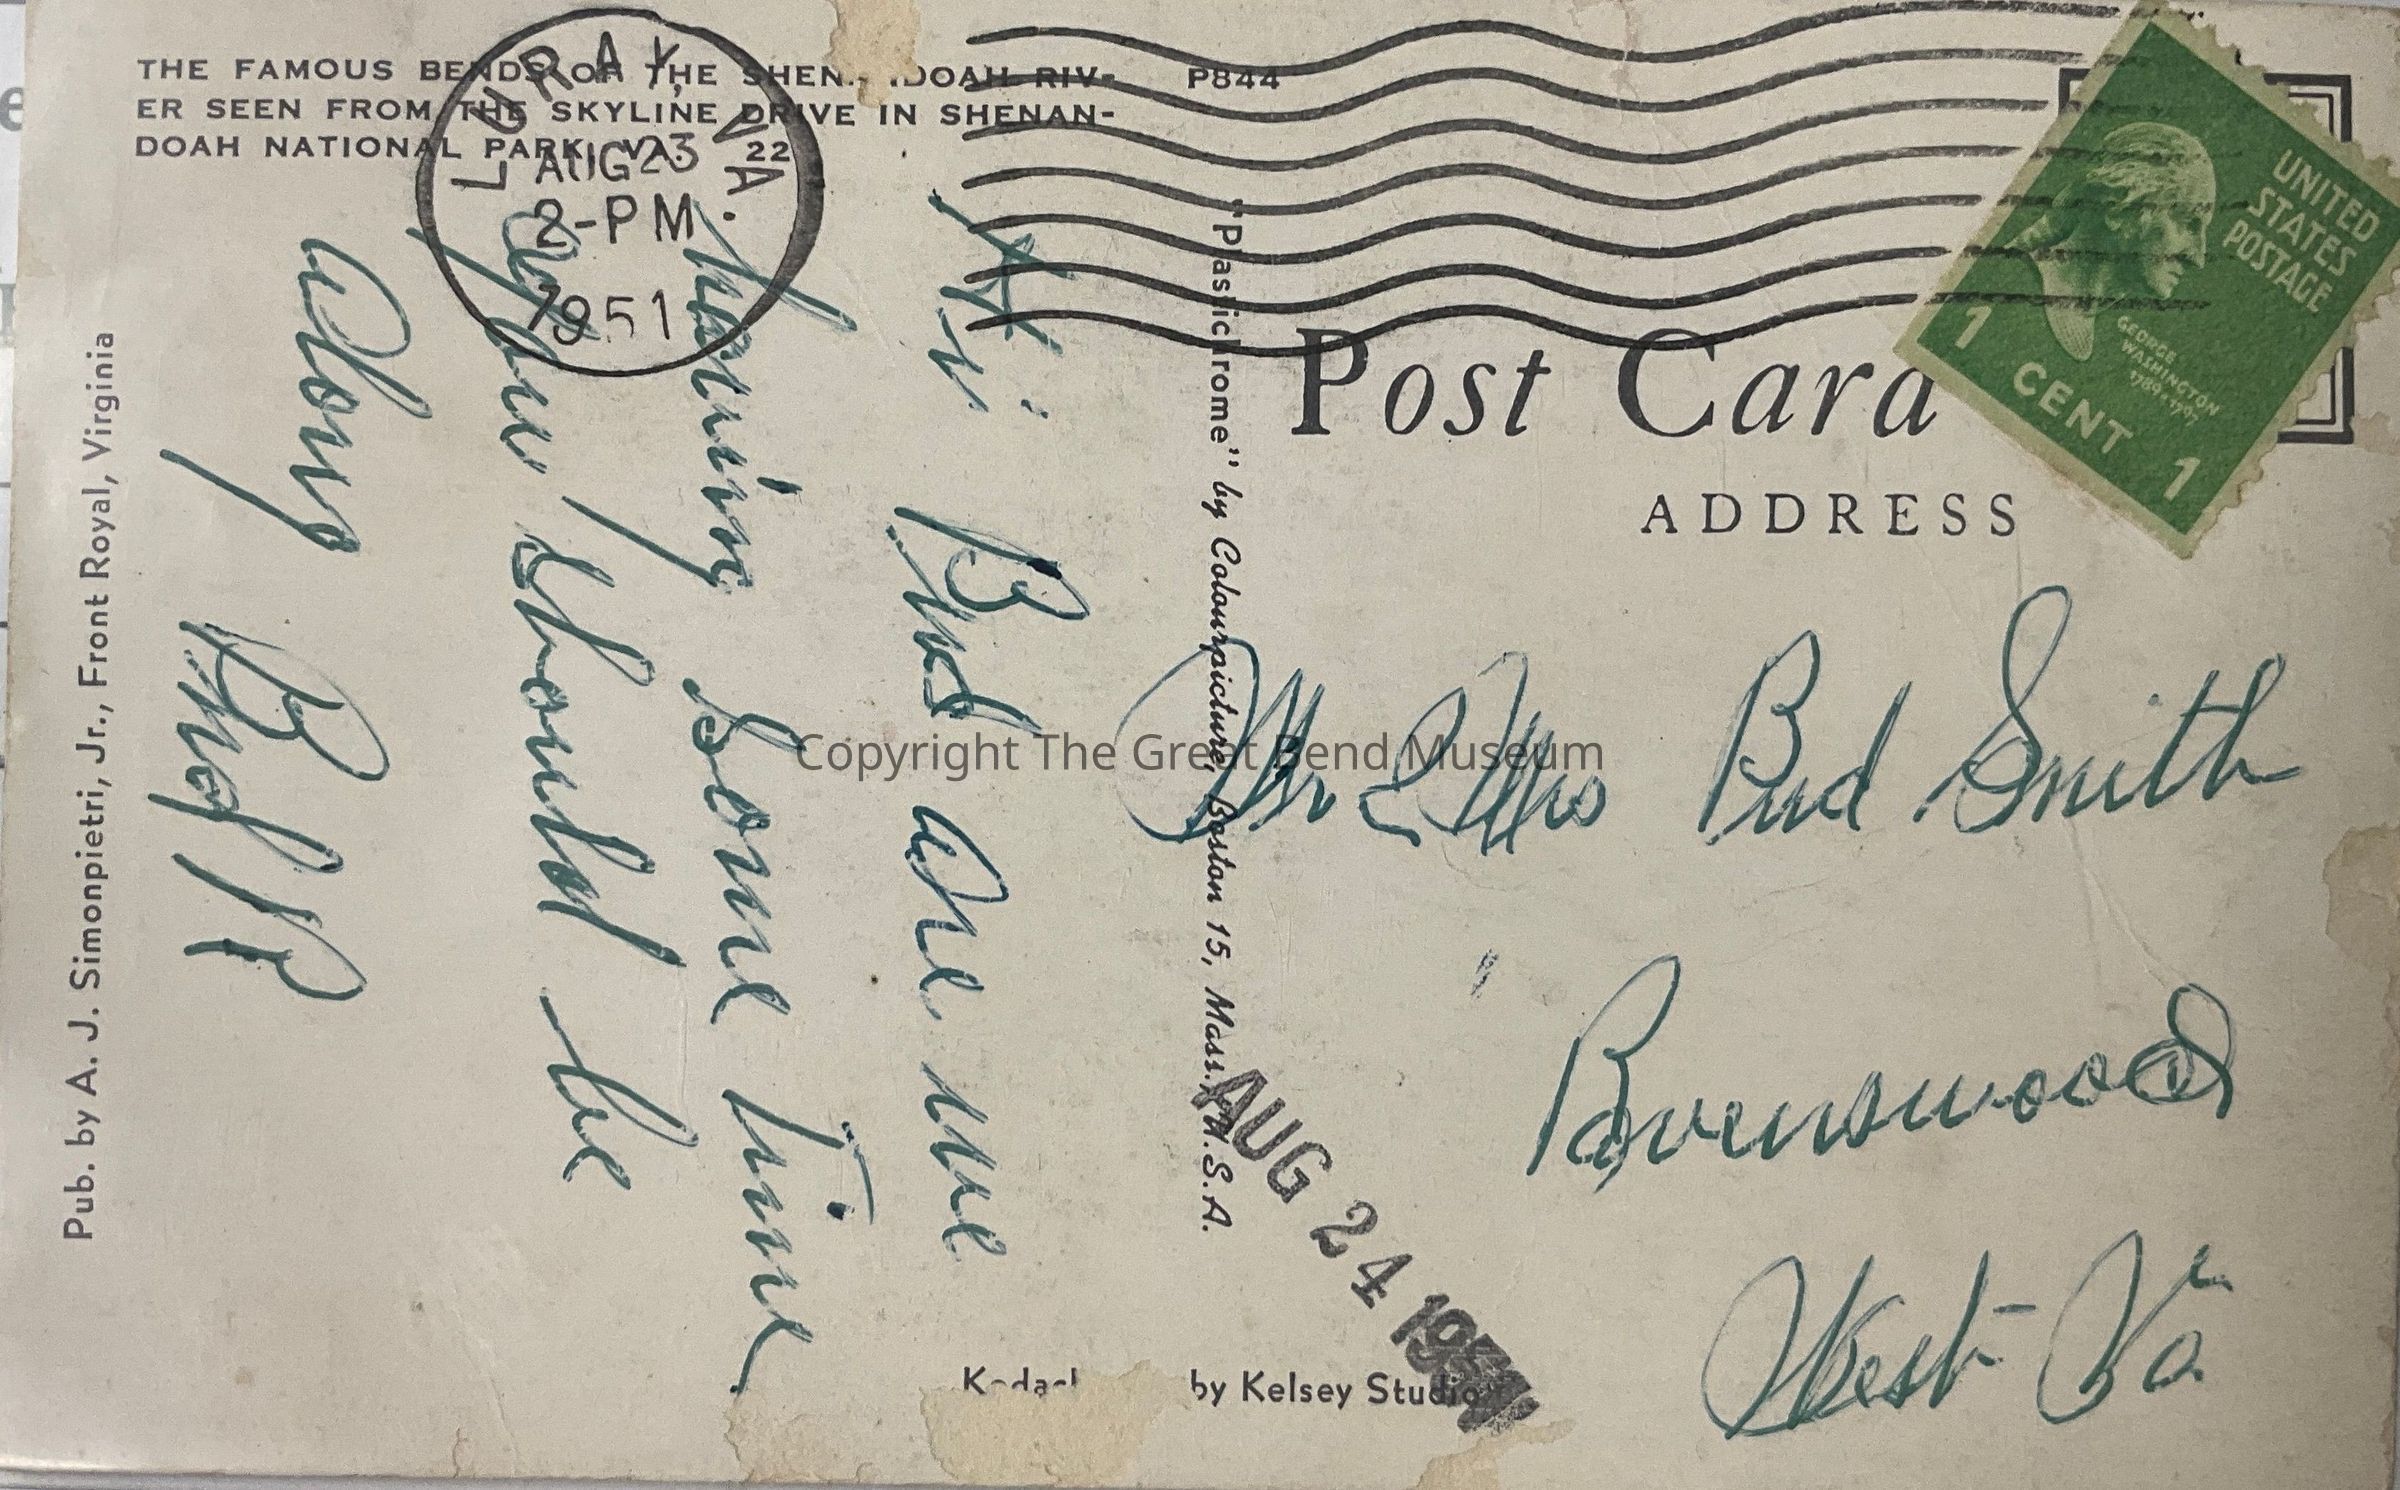 THE FAMOUS BENDS OF THE SHENANDOAH RIV-
ER SEEN FROM THE SKYLINE DRIVE IN SHENAN-
DOAH NATIONAL PARK, VA. 22
P844
LURAY, VA.
AUG 23
2-PM
1951
UNITED
STATES
POSTAGE
GEORGE
WASHINGTON
1789-1797
1 CENT 1
Post Card
ADDRESS
Hi Bud are we
having some time
you should be
along
Mr & Mrs Bud Smith
Ravenswood
West Va
"Plastichrome" by Colourpicture, Boston 15, Mass., U.S.A.
AUG 24 1951
by Kelsey Studio
Pub. by A. J. Simonpietri, Jr., Front Royal, Virginia
Copyright The Great Bend Museum